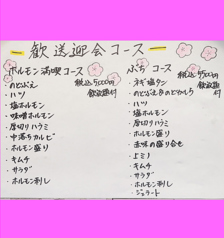 歓送迎会コース
ホルモン満喫コース
税込5,000円
飲放題付
・のどぶえ
・ハツ
・塩ホルモン
・味噌ホルモン
・厚切りハラミ
・中落ちカルビ
・ホルモン盛り
・キムチ
・サラダ
・ホルモン刺し
ぶちコース
税込5500円
飲放題付
・ネギ塩タン
・のどぶえ&のどがしら
・ハツ
・塩ホルモン
・厚切りハラミ
・ホルモン盛り
・赤味の盛り合せ
・キムチ
・サラダ
・ホルモン刺し
・ジェラート